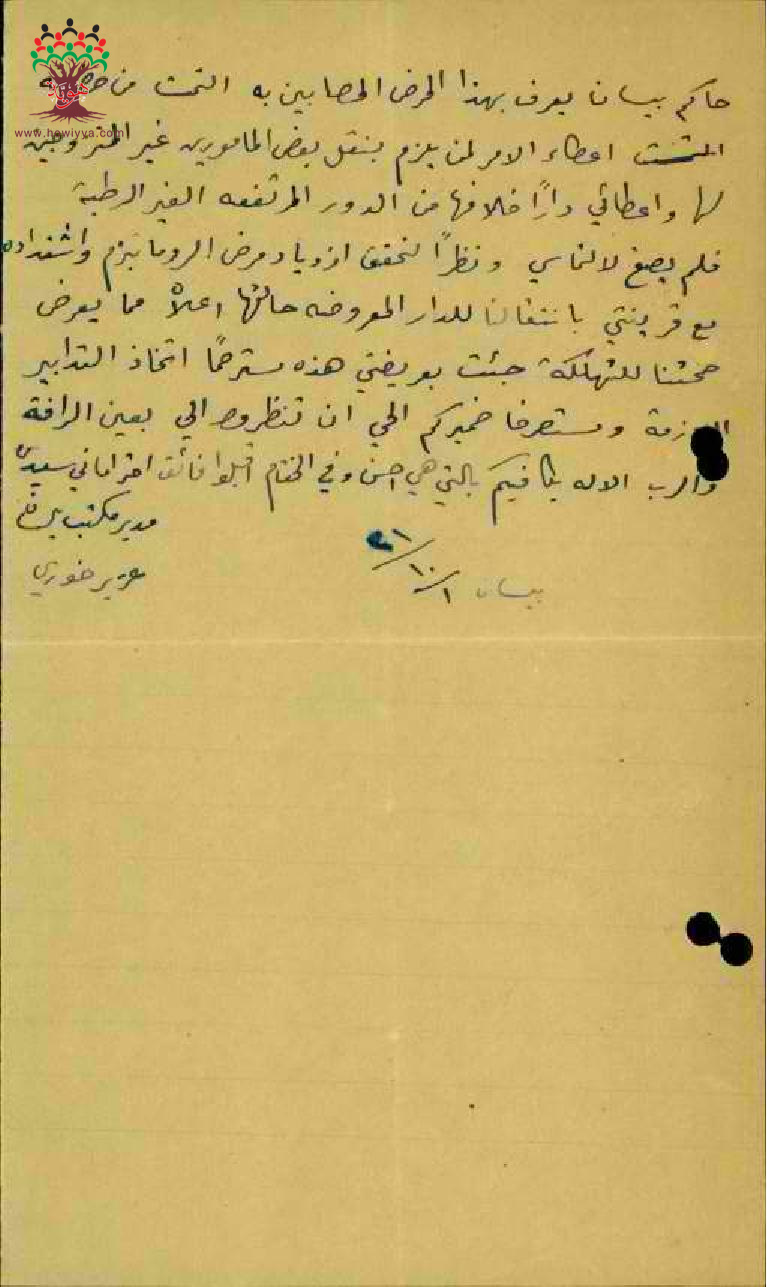 هوية
www.howiyya.com
حاكم بيسان يعرف بهذا المرض المصابين به التمست من
اعطاء الامر لمن يلزم بنقل بعض المامورين غير المتزوجين
لها واعطائي دارًا خلافها من الدور المرتفعه الغير الرطبة
فلم يصغ لالتماسي ونظرًا لتحقق ازدياد مرض الروماتيزم واشتداده
مع قرينتي بانتقالنا للدار المعروضه حالتها اعلاه مما يعرض
صحتنا للتهلكة جئت بعريضتي هذه مسترحمًا اتخاذ التدابير
اللازمة ومستصرخا ضميركم الحي ان تنظروا الي بعين الرافة
والرب الاله يكافيكم بالتي هي احسن وفي الختام اقبلوا فائق احتراماتي سيدي
مدير مكتب بيسان
عزيز خوري
بيسان ١/١٠/٢١